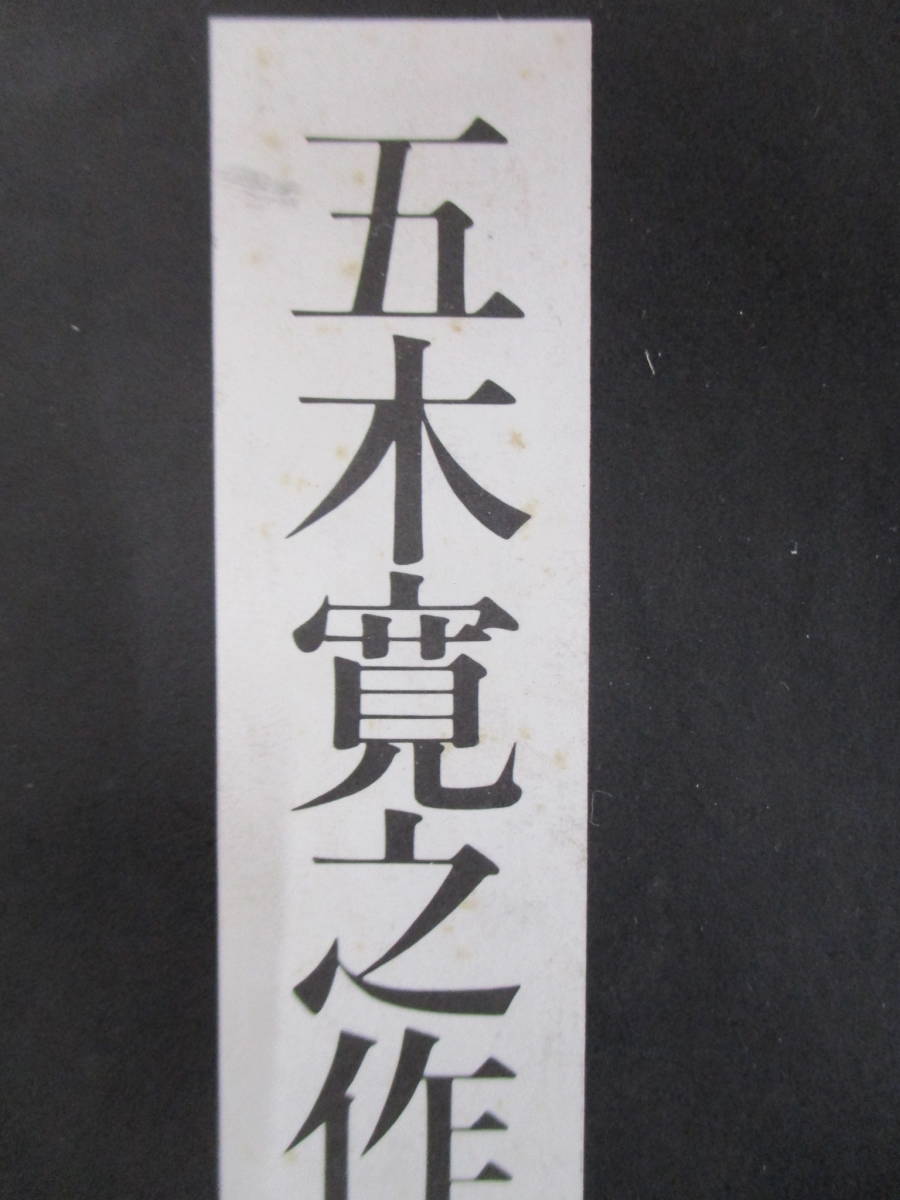 五木寛之作